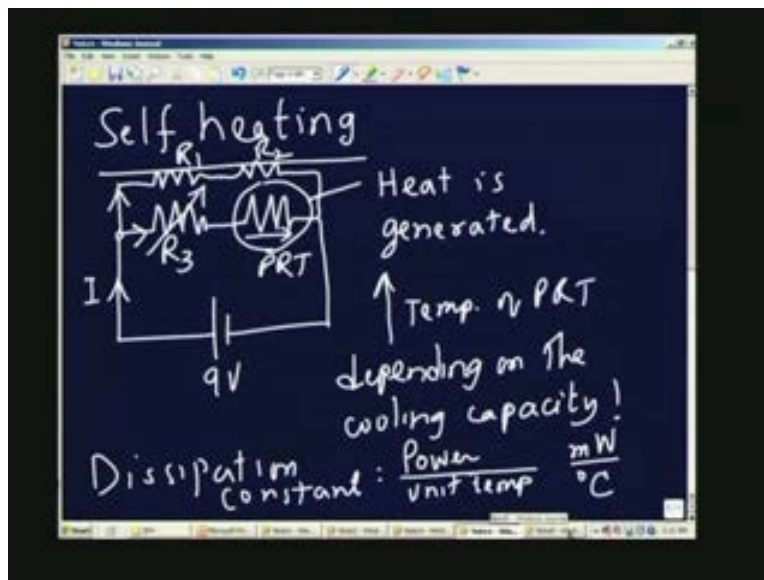 Self heating
R1 R2
Heat is
generated.
R3
PRT
I
↑ Temp. of PRT
9V
depending on the
cooling capacity!
Dissipation
constant : Power / unit temp mW / °C